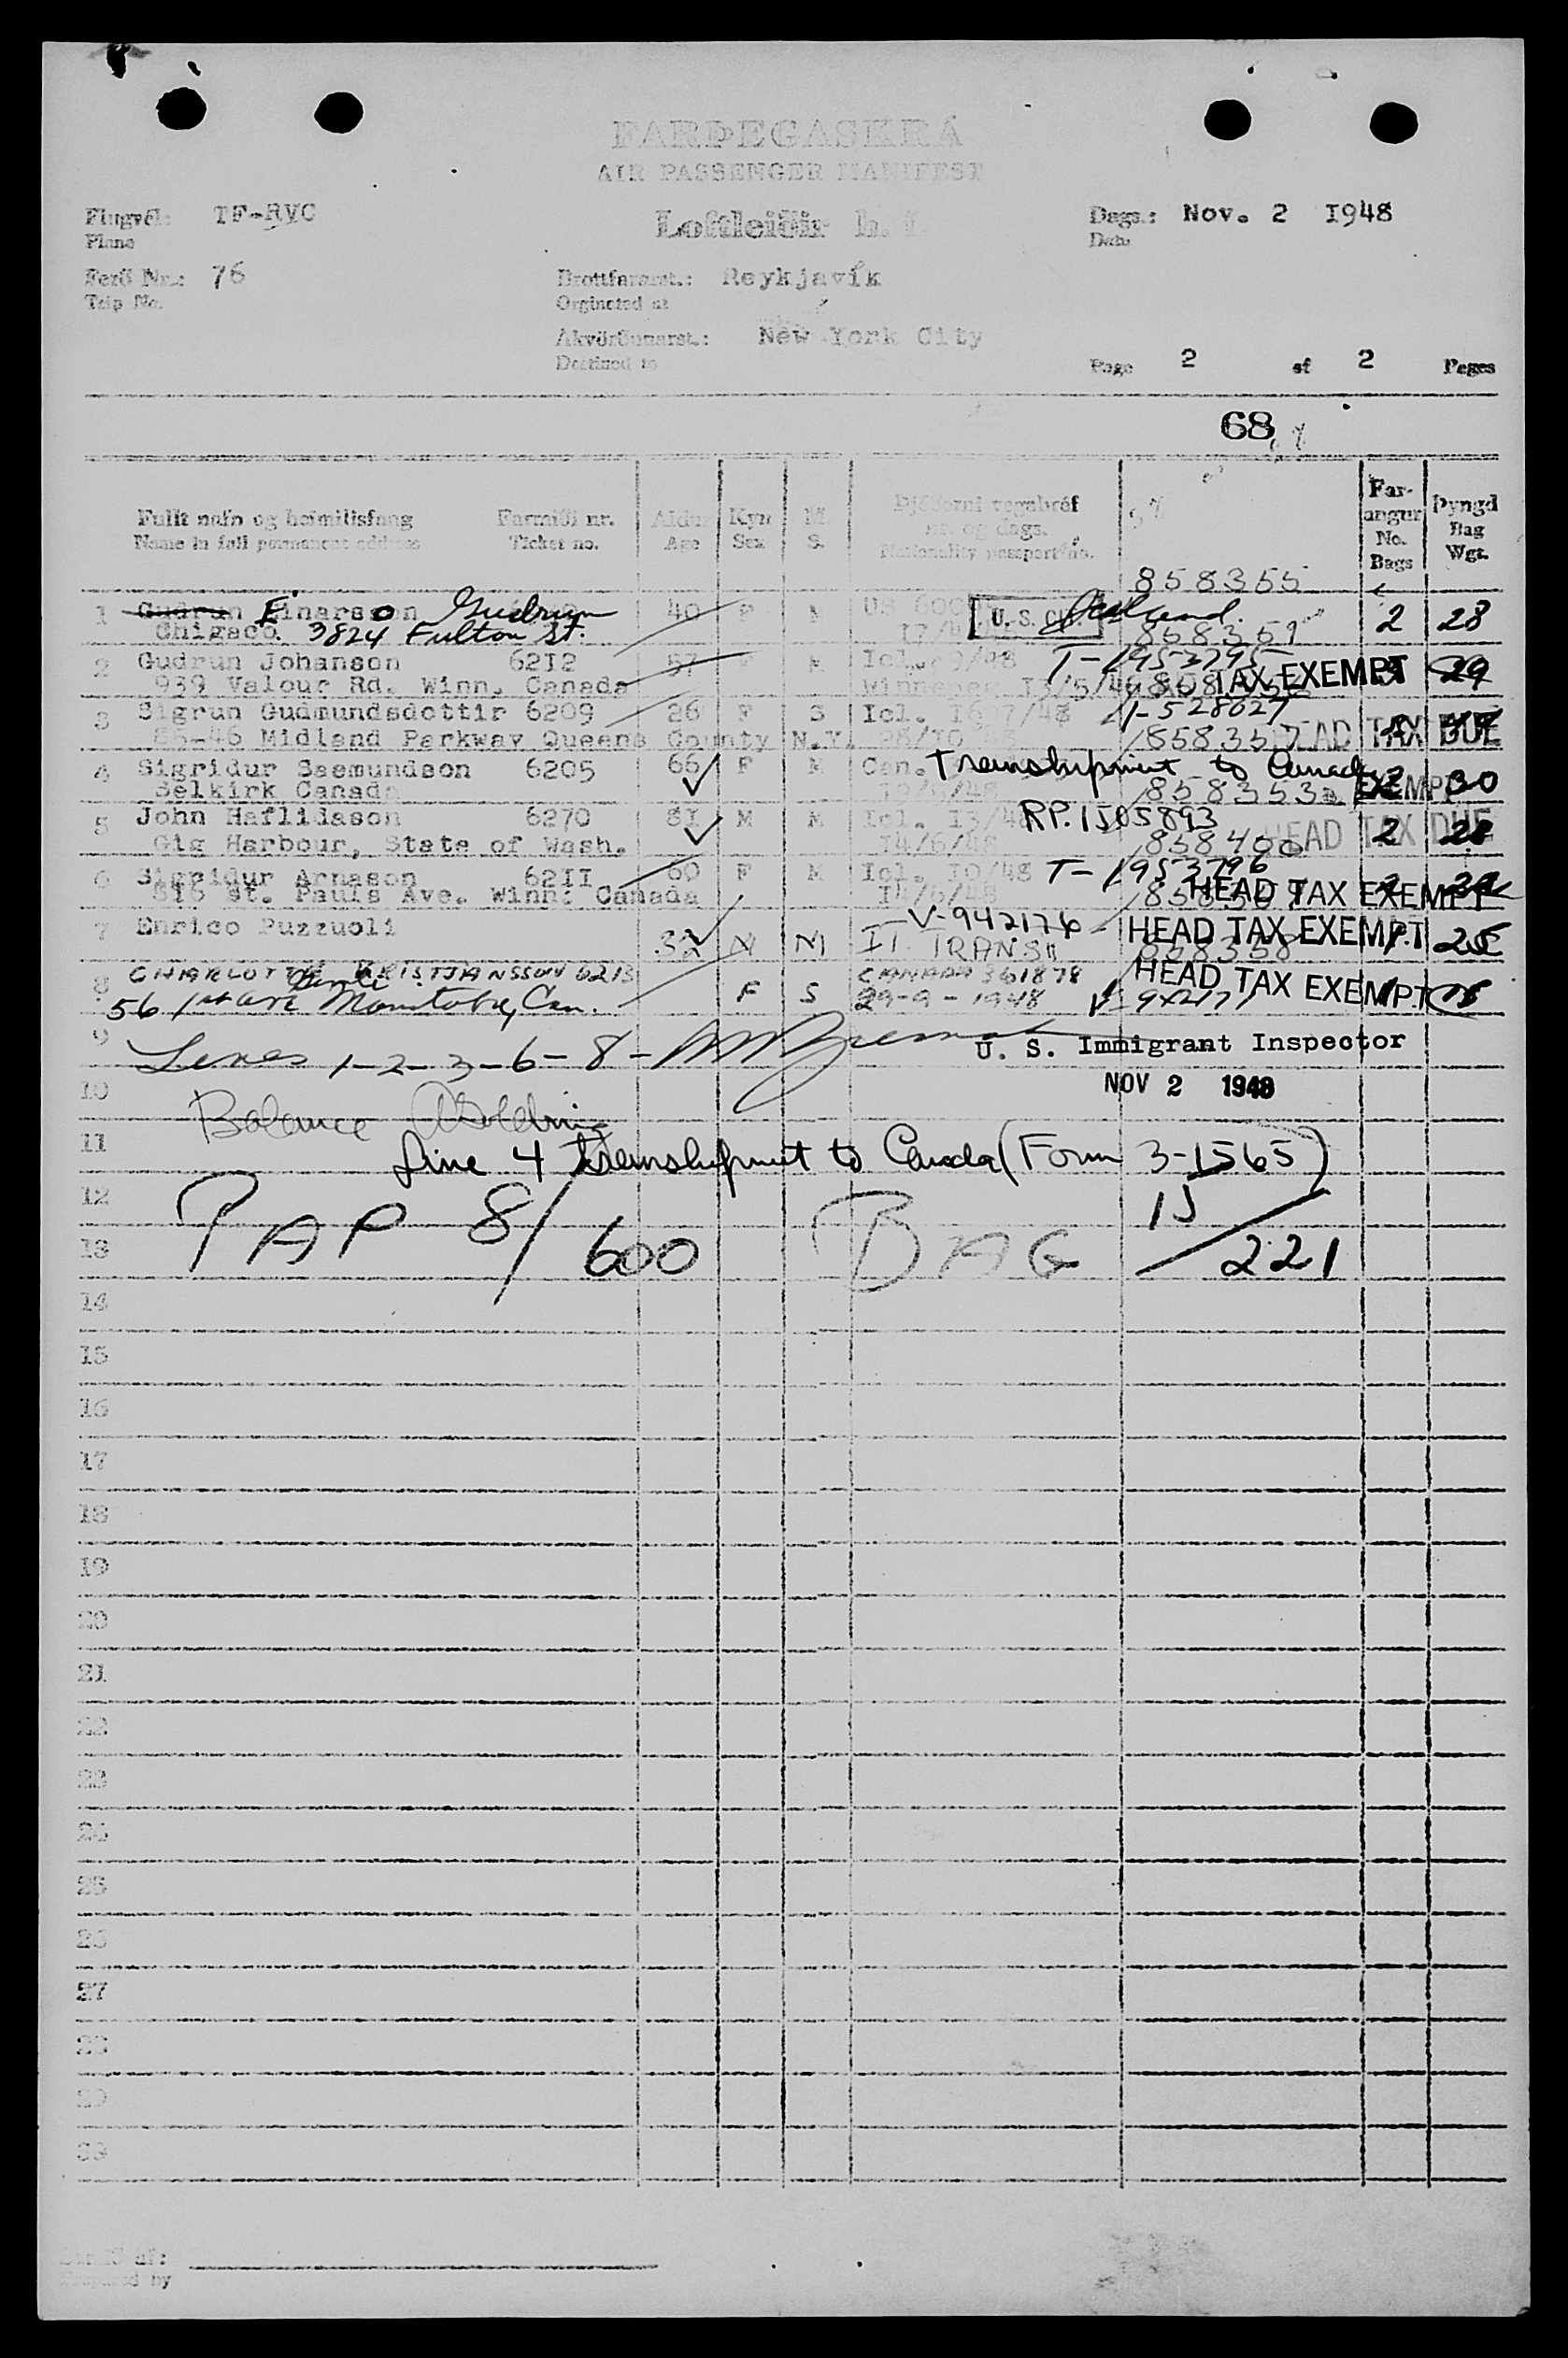 FARÞEGASKRÁ
AIR PASSENGER MANIFEST
Loftleiðir h.f.
Flugvél: TF-RVC
Plane
Dags.: Nov. 2 1948
Date
Ferð Nr.: 76
Trip No.
Brottfararst.: Reykjavík
Orginated at
Akvörðunarst.: New York City
Destined to
Page 2 of 2 Pages
68
Fullt nafn og heimilisfang Farmiði nr. Aldur Kyn M.
Name in full permanent address Ticket no. Age Sex S.
nr. og dags.
Nationality passport no.
Far-angur No. Bags
Þyngd Bag Wgt.
858355
1 Gudrun Einarsson Gudrun 40 F M U.S. CIT. 2 28
Chigaco 3824 Fulton St. 858359
2 Gudrun Johanson 6212 57 F M Icl. T-1953795 29
939 Valour Rd. Winn. Canada Winnepeg 13/5/48 TAX EXEMPT
3 Sigrun Gudmundsdottir 6209 26 F S Icl. 1607/48 V-528627
85-46 Midland Parkway Queens County N.Y. 28/10 858357 HEAD TAX DUE
4 Sigridur Saemundson 6205 66 F M Can. Transhipment to Canada 2 30
Selkirk Canada 858353 EXEMPT
5 John Haflidason 6270 81 M M Icl. 13/48 RP.1505893 2 28
Gig Harbour, State of Wash. 14/6/48 HEAD TAX DUE
6 Sigridur Arnason 6211 60 F M Icl. 10/48 T-1953796
816 St. Pauls Ave. Winn: Canada 14/5/48 HEAD TAX EXEMPT
7 Enrico Puzzuoli 32 M M IT. TRANSIT V-942176 858358 HEAD TAX EXEMPT 1 25
8 CHARLOTTE KRISTJANSSON 6213 F S CANADA 361878 HEAD TAX EXEMPT 1 15
Gimli
56 1st ave Manitoba, Can. 29-9-1948 V-942177
9 Lines 1-2-3-6-8-
U. S. Immigrant Inspector
10 NOV 2 1948
Balance
11 Line 4 transhipment to Canada (Form 3-1565)
12 PAP 8/600 BAG 15/221
13
14
15
16
17
18
19
20
21
22
23
24
25
26
27
28
29
Prepared by